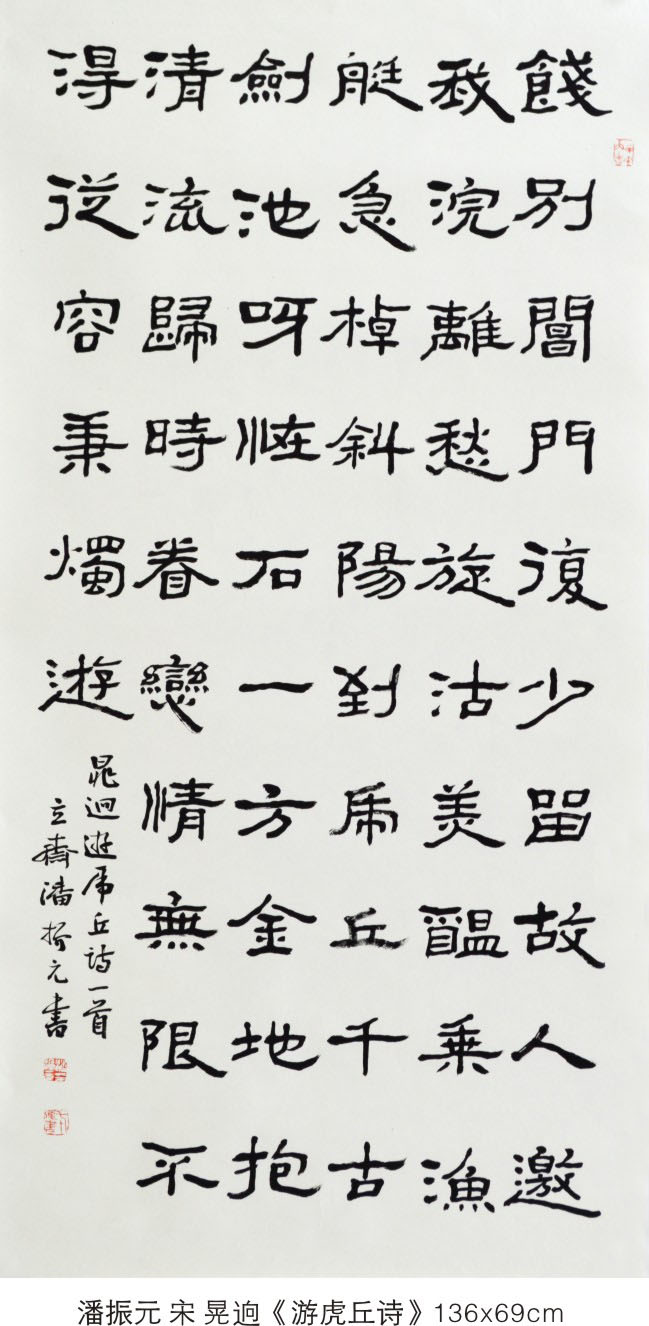 餞別閶門復少留故人邀
我浣離愁旋沽美醞乘漁
艇急棹斜陽到虎丘千古
劍池呀恠石一方金地抱
清流歸時眷戀情無限不
得從容秉燭遊
晁迥遊虎丘詩一首
立齋潘振元書
潘振元 宋 晃逈《游虎丘诗》136x69cm